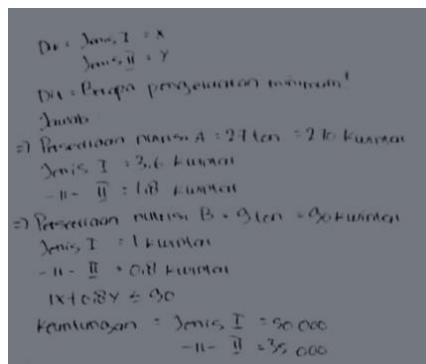 Dik = Jenis I = X
Jenis II = Y
Dit = Berapa pengeluaran minimum!
Jawab
=> Persediaan nutrisi A = 27 ton = 270 kuintal
Jenis I = 3,6 kuintal
-11- II = 1,8 kuintal
=> Persediaan nutrisi B = 9 ton = 90 kuintal
Jenis I = 1 kuintal
-11- II = 0,8 kuintal
1X + 0,8Y ≤ 90
Keuntungan = Jenis I = 50 000
-11- II = 35 000